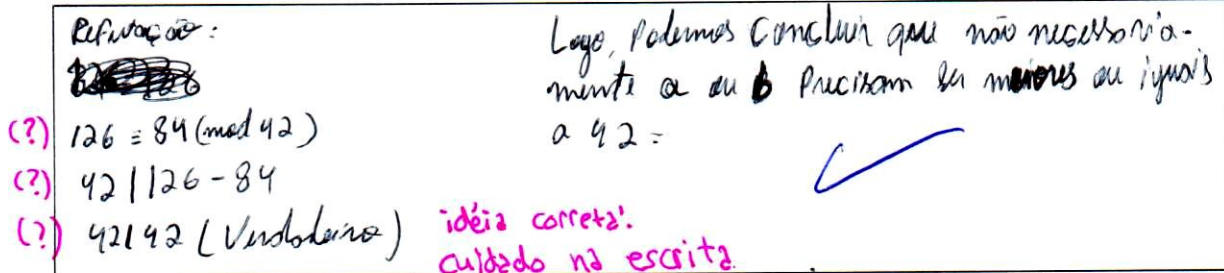 Refutação:
(?) 126 ≡ 84 (mod 42)
(?) 42 | 126 - 84
(?) 42 | 42 (Verdadeiro)
idéia correta!
cuidado na escrita
Logo, Podemos Concluir que não necessaria-
mente a ou b Precisam ser maiores ou iguais
a 42 =